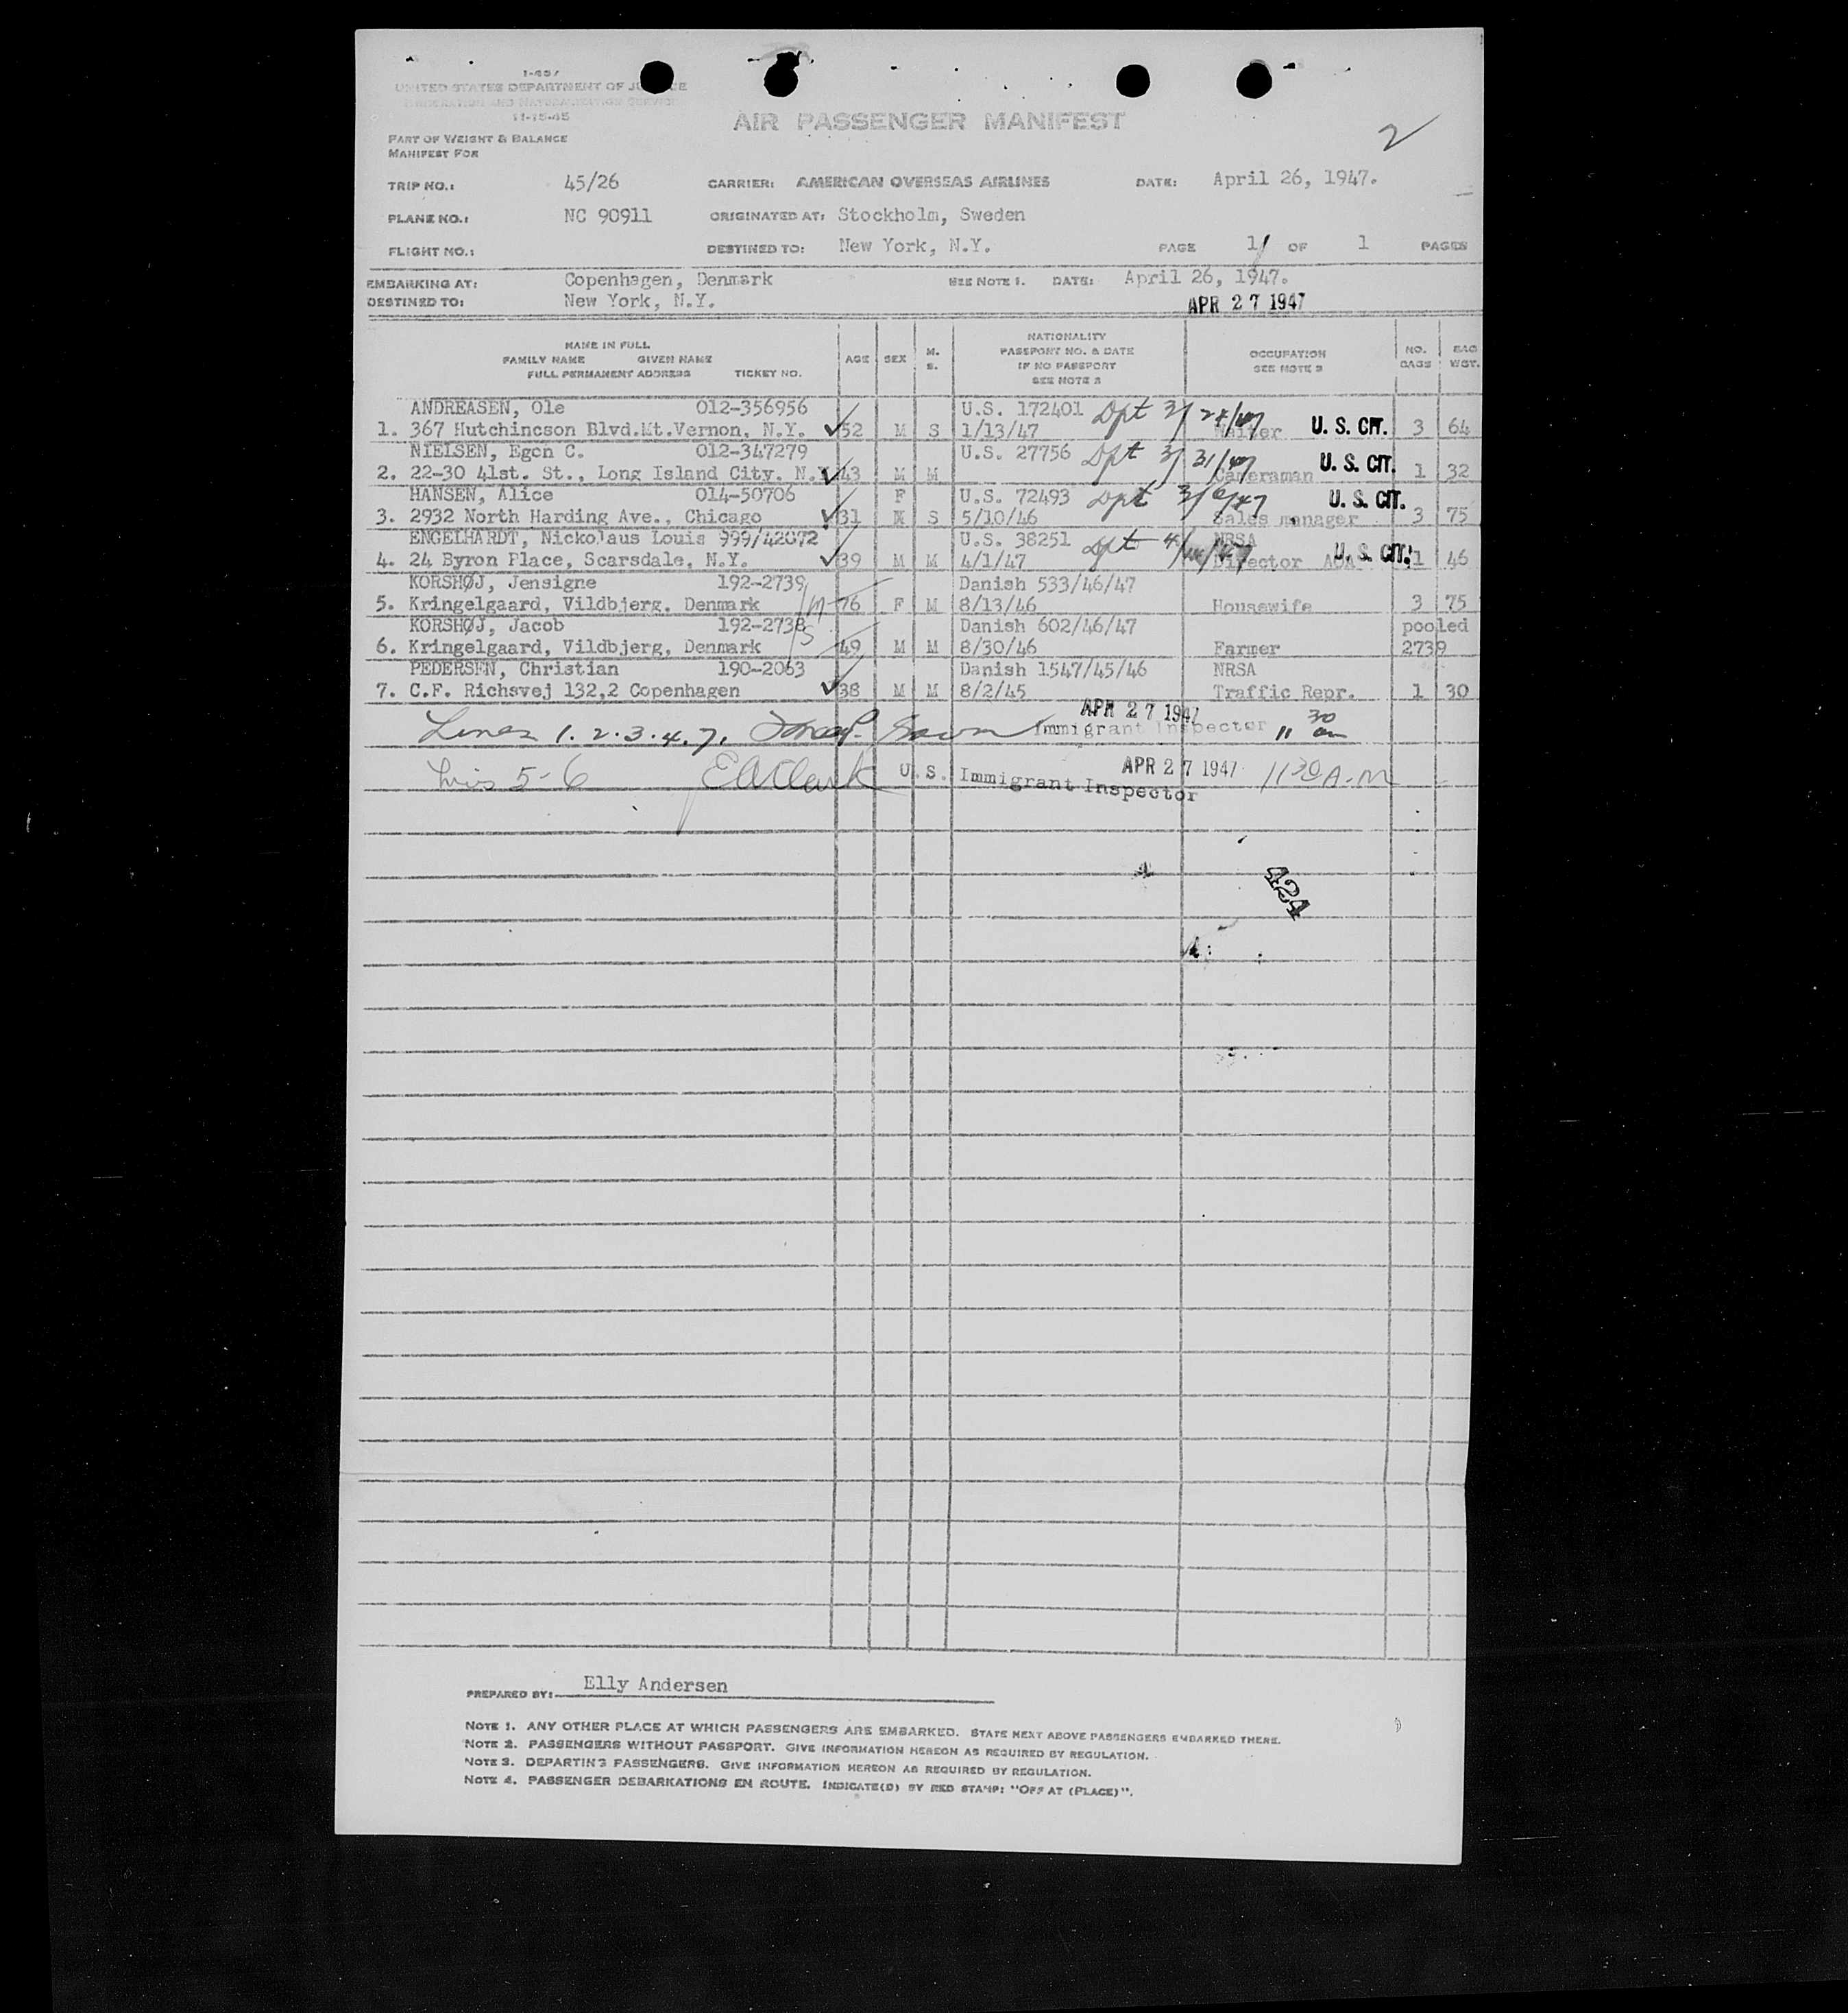 1-457
UNITED STATES DEPARTMENT OF JUSTICE
IMMIGRATION AND NATURALIZATION SERVICE
11-15-45
AIR PASSENGER MANIFEST
2
PART OF WEIGHT & BALANCE
MANIFEST FOR
TRIP NO.: 45/26 CARRIER: AMERICAN OVERSEAS AIRLINES DATE: April 26, 1947.
PLANE NO.: NC 90911 ORIGINATED AT: Stockholm, Sweden
FLIGHT NO.: DESTINED TO: New York, N.Y. PAGE 1/ OF 1 PAGES
EMBARKING AT: Copenhagen, Denmark SEE NOTE 1. DATE: April 26, 1947.
DESTINED TO: New York, N.Y. APR 27 1947
NAME IN FULL
FAMILY NAME GIVEN NAME
FULL PERMANENT ADDRESS TICKET NO.
AGE SEX M. S.
NATIONALITY
PASSPORT NO. & DATE
IF NO PASSPORT
SEE NOTE 2
OCCUPATION
SEE NOTE 3
NO. BAGS
BAG WGT.
ANDREASEN, Ole 012-356956 U.S. 172401 Dpt 3/28/47
1. 367 Hutchincson Blvd.Mt.Vernon, N.Y. 52 M S 1/13/47 Waiter U. S. CIT. 3 64
NIELSEN, Egon C. 012-347279 U.S. 27756 Dpt 3/31/47
2. 22-30 41st. St., Long Island City, N.Y. 43 M M Cameraman U. S. CIT. 1 32
HANSEN, Alice 014-50706 F U.S. 72493 Dpt 3/6/47
3. 2932 North Harding Ave., Chicago 31 M S 5/10/46 Sales manager U. S. CIT. 3 75
ENGELHARDT, Nickolaus Louis 999/42072 U.S. 38251 Dpt 4/ /47 NRSA
4. 24 Byron Place, Scarsdale, N.Y. 39 M M 4/1/47 Director AOA U. S. CIT. 1 46
KORSHØJ, Jensigne 192-2739 Danish 533/46/47
5. Kringelgaard, Vildbjerg, Denmark 76 F M 8/13/46 Housewife 3 75
KORSHØJ, Jacob 192-2738 Danish 602/46/47 pooled
6. Kringelgaard, Vildbjerg, Denmark 49 M M 8/30/46 Farmer 2739
PEDERSEN, Christian 190-2063 Danish 1547/45/46 NRSA
7. C.F. Richsvej 132,2 Copenhagen 38 M M 8/2/45 Traffic Repr. 1 30
APR 27 1947
Lines 1.2.3.4.7. Immigrant Inspector 11 30 am
Lines 5-6 E A Clark U.S. Immigrant Inspector APR 27 1947 11 30 A.M
424
PREPARED BY: Elly Andersen
NOTE 1. ANY OTHER PLACE AT WHICH PASSENGERS ARE EMBARKED. STATE NEXT ABOVE PASSENGERS EMBARKED THERE.
NOTE 2. PASSENGERS WITHOUT PASSPORT. GIVE INFORMATION HEREON AS REQUIRED BY REGULATION.
NOTE 3. DEPARTING PASSENGERS. GIVE INFORMATION HEREON AS REQUIRED BY REGULATION.
NOTE 4. PASSENGER DEBARKATIONS EN ROUTE. INDICATE(D) BY RED STAMP: "OFF AT (PLACE)".